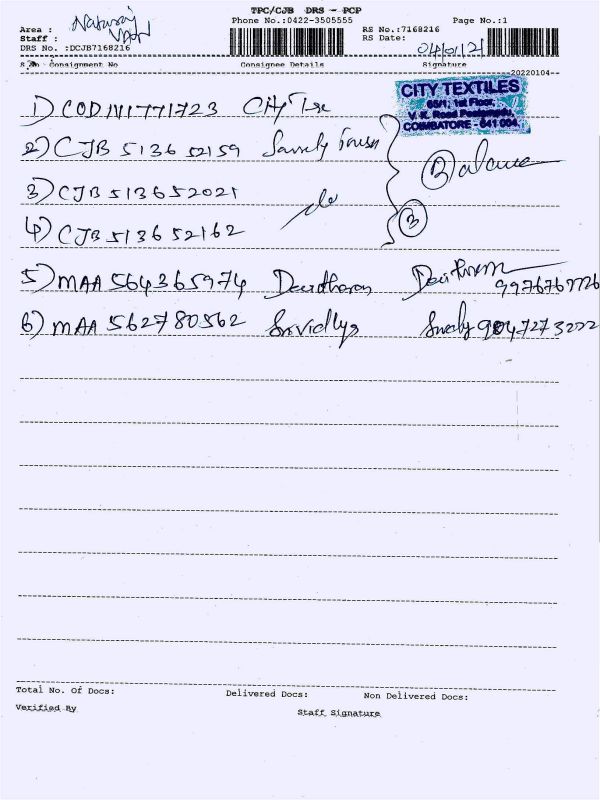 TPC/CJB DRS - PCP
Phone No.:0422-3505555 Page No.:1
Area : Nataraj
Staff :
RS No.:7168216
DRS No. :DCJB7168216 RS Date: 04/01/2
S.No Consignment No Consignee Details Signature
20220104
CITY TEXTILES
65/1, 1st Floor,
V. K. Road
COIMBATORE - 641 004.
1) COD 1V1771723 City Tex
2) CJB 513652159
3) CJB 513652021 do
4) CJB 513652162
3 Balance
5) MAA 564365974 Devidharan 9976767726
6) MAA 562780562 Srividhya 9047273222
Total No. Of Docs: Delivered Docs: Non Delivered Docs:
Verified By Staff Signature